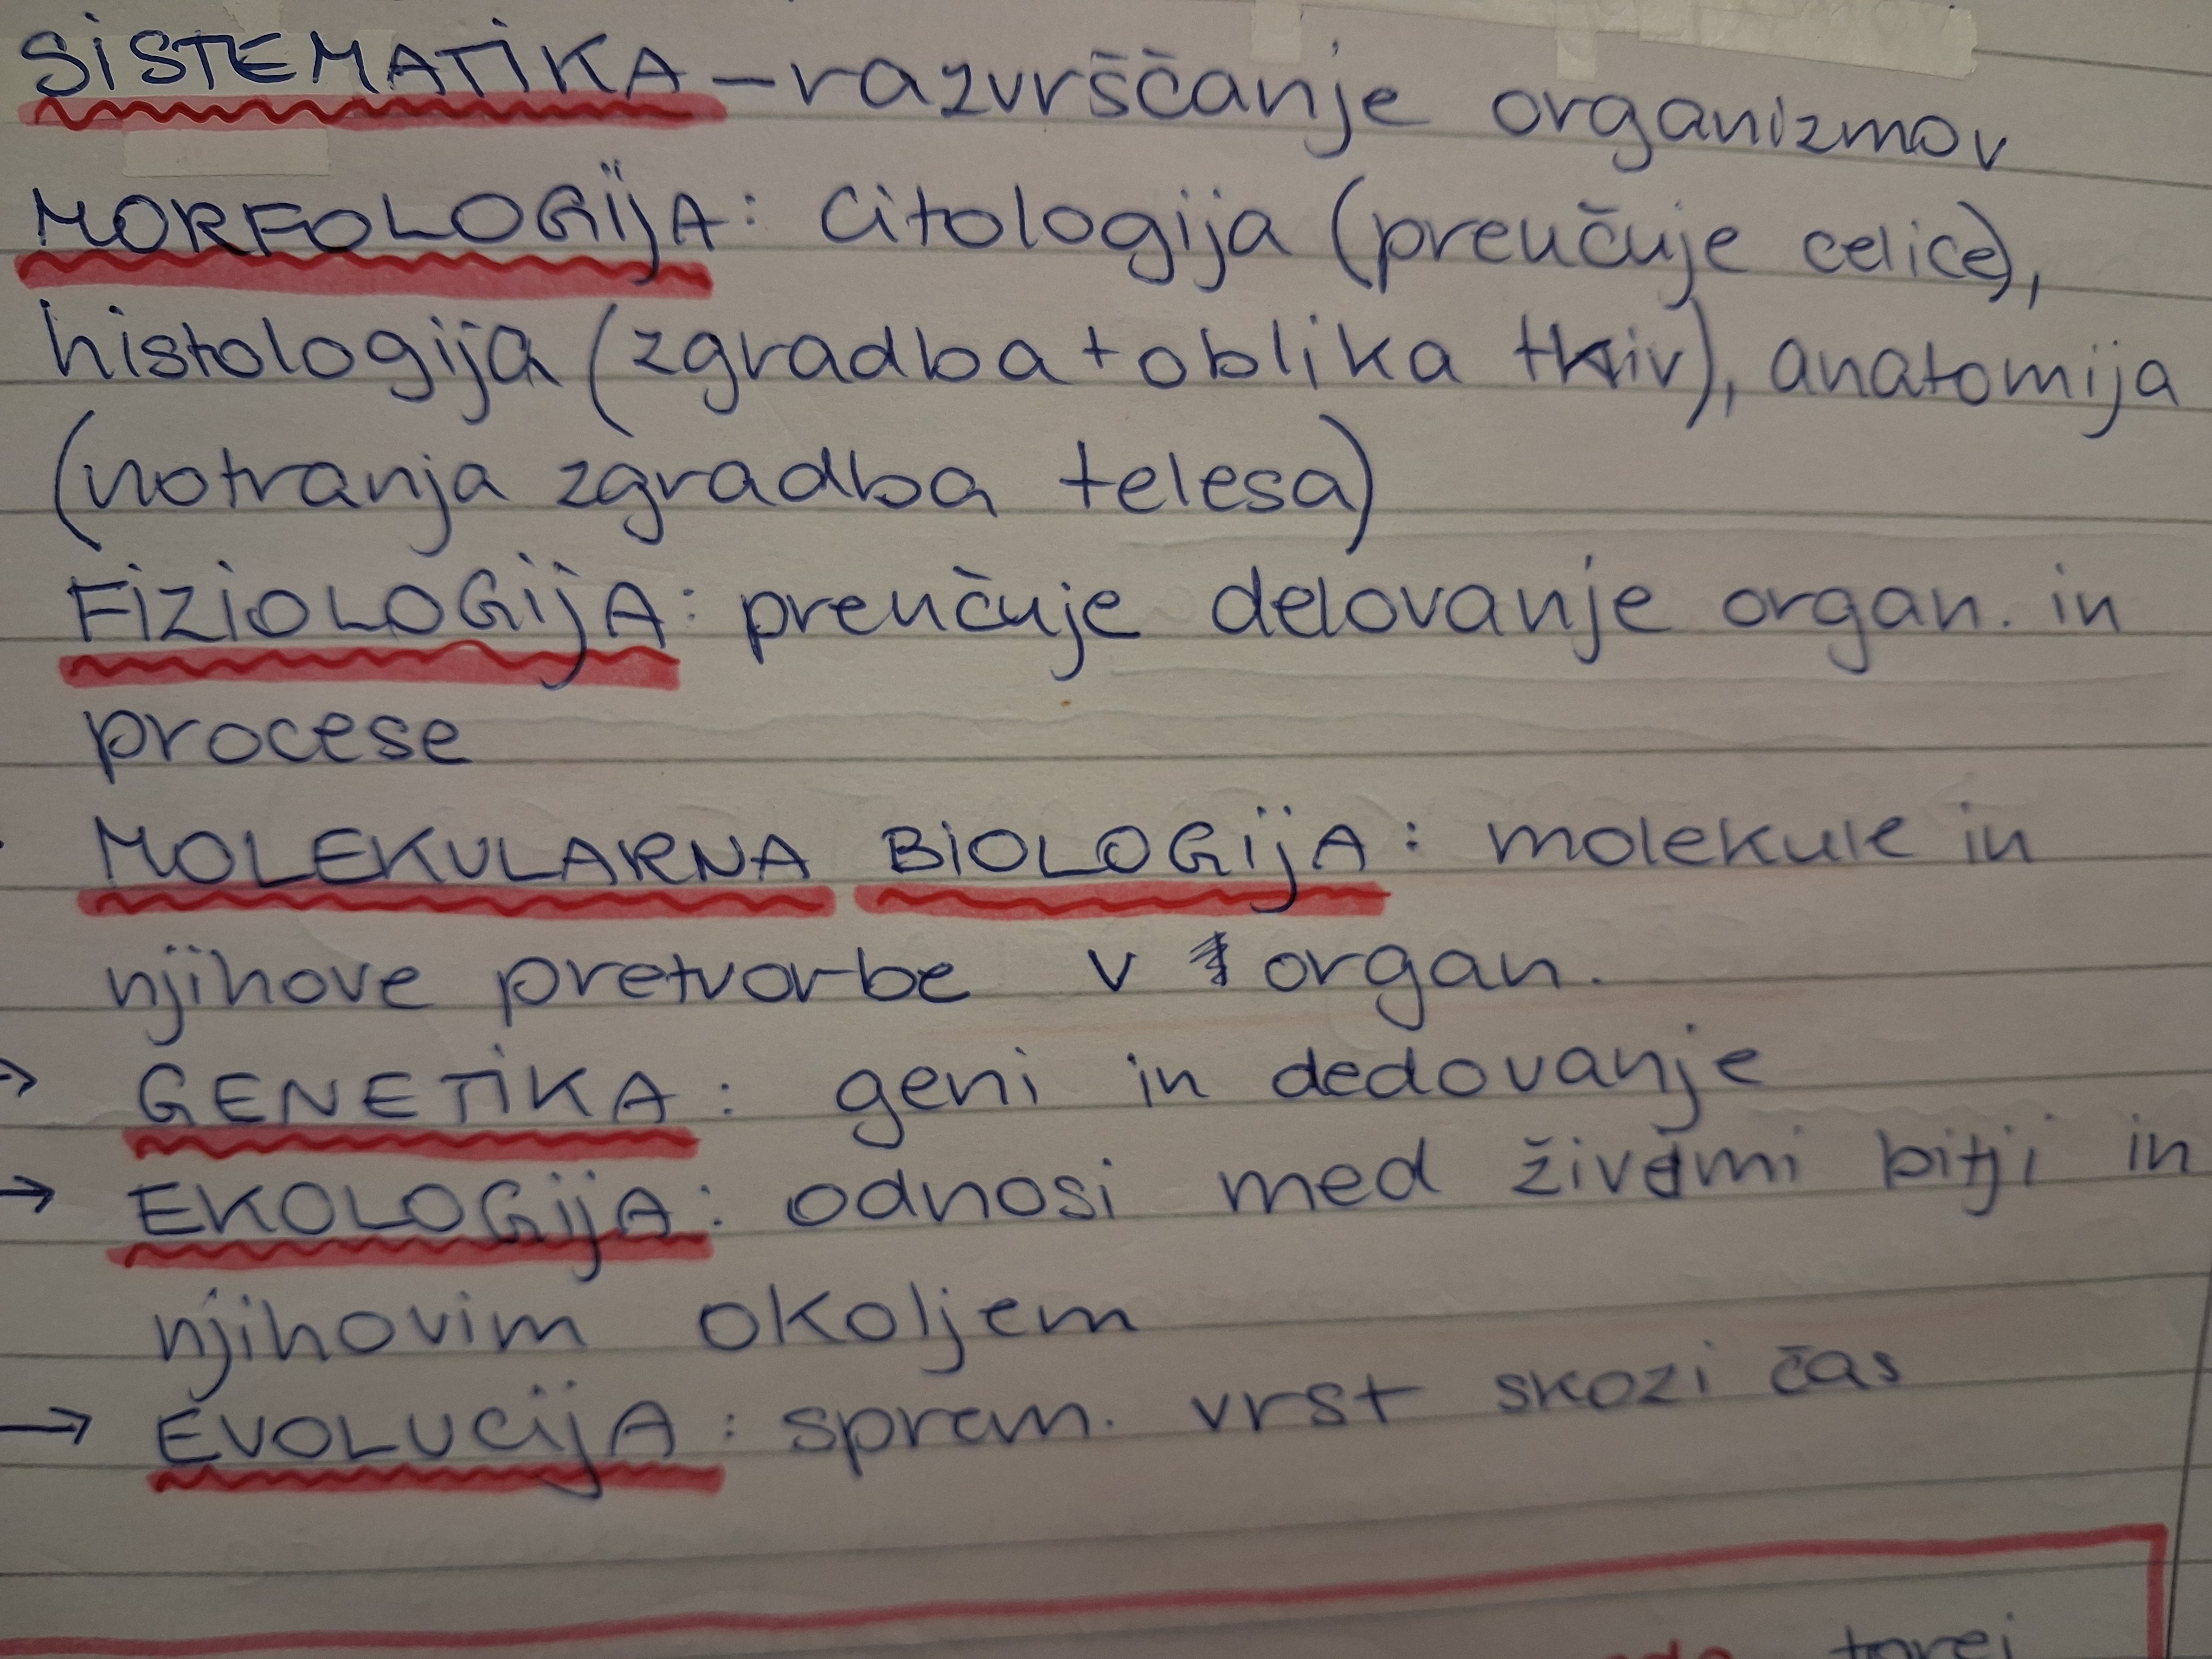 SISTEMATIKA – razvrščanje organizmov
MORFOLOGIJA: citologija (preučuje celice),
histologija (zgradba + oblika tkiv), anatomija
(notranja zgradba telesa)
FIZIOLOGIJA: preučuje delovanje organ. in
procese
MOLEKULARNA BIOLOGIJA: molekule in
njihove pretvorbe v organ.
→ GENETIKA: geni in dedovanje
→ EKOLOGIJA: odnosi med živimi bitji in
njihovim okoljem
→ EVOLUCIJA: sprem. vrst skozi čas
torej